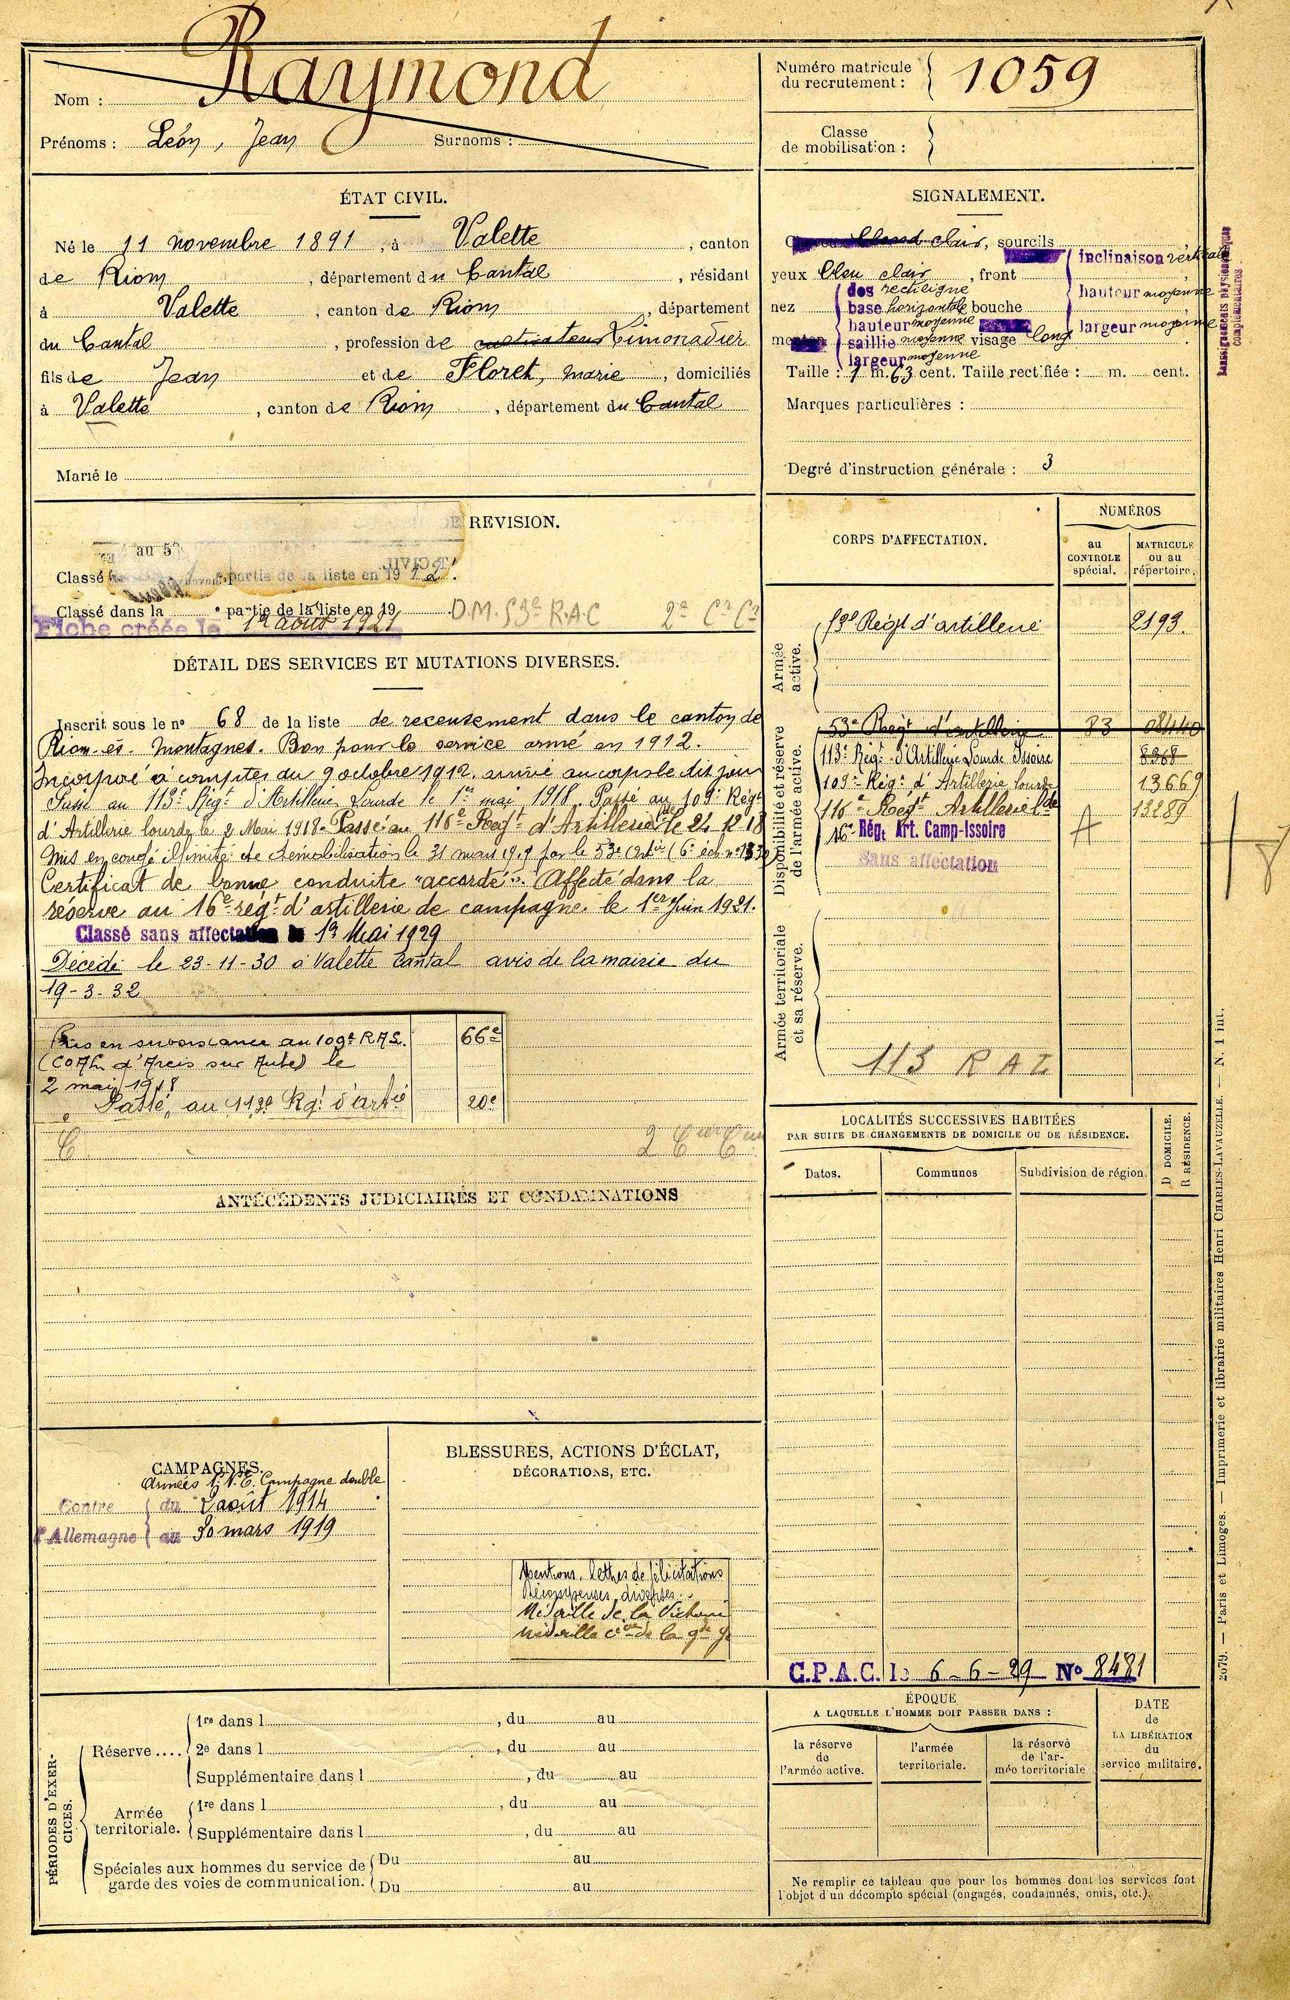 Nom : Raymond
Prénoms : Léon, Jean Surnoms :
Numéro matricule
du recrutement : 1059
Classe
de mobilisation :
ÉTAT CIVIL.
Né le 11 novembre 1891, à Valette, canton
de Riom, département du Cantal, résidant
à Valette, canton de Riom, département
du Cantal, profession de cultivateur Limonadier
fils de Jean et de Floret, marie, domiciliés
à Valette, canton de Riom, département du Cantal
Marié le
SIGNALEMENT.
clair, sourcils
yeux bleu clair, front
inclinaison verticale
hauteur moyenne
largeur moyenne
nez
dos rectiligne
base horizontale bouche
hauteur moyenne
saillie moyenne visage long
largeur moyenne
menton
Taille : 1 m. 63 cent. Taille rectifiée : m. cent.
Marques particulières :
Degré d'instruction générale : 3
Renseignements physionomiques
complémentaires
DE REVISION.
au 53
Classé partie de la liste en 1912.
Classé dans la e partie de la liste en 19
Fiche créée le 12 août 1921
D.M. 53e R.A.C 2e Cn Cn
DÉTAIL DES SERVICES ET MUTATIONS DIVERSES.
Inscrit sous le no 68 de la liste de recensement dans le canton de
Riom-ès-Montagnes. Bon pour le service armé en 1912.
Incorporé à compter du 9 octobre 1912. arrivé au corps le dit jour
Passé au 113e Régt d'Artillerie Lourde le 1er mai 1918. Passé au 109e Régt
d'Artillerie lourde le 2 Mai 1918. Passé au 116e Regt d'Artillerie Lde le 24-12-18
Mis en congé illimité de démobilisation le 31 mars 1919 par le 53e
Certificat de bonne conduite "accordé". Affecté dans la
réserve au 16e régt d'artillerie de campagne le 1er Juin 1921.
Classé sans affectation le 1er Mai 1929
Décédé le 23-11-30 à Valette Cantal avis de la mairie du
19-3-32
Pris en subsistance au 109e R.A.L. 66e
(COAL d'Arcis sur Aube) le
2 mai 1918
Passé au 113e Rgt d'artie 20e
ANTÉCÉDENTS JUDICIAIRES ET CONDAMNATIONS
CORPS D'AFFECTATION.
NUMÉROS
au
CONTROLE
spécial.
MATRICULE
ou au
répertoire.
Armée
active.
53e Régt d'artillerie 2193.
Disponibilité et réserve
de l'armée active.
53e Regt d'artillerie 83 08440
113e Régt d'Artillerie Lourde Issoire 8368
109e Régt d'Artillerie Lourde 13669
116e Regt Artillerie Lde 13289
16e Régt Art. Camp-Issoire A
Sans affectation
Armée territoriale
et sa réserve.
113 R A L
LOCALITÉS SUCCESSIVES HABITÉES
PAR SUITE DE CHANGEMENTS DE DOMICILE OU DE RÉSIDENCE.
Dates. Communes Subdivision de région.
D DOMICILE.
R RÉSIDENCE.
C.P.A.C. le 6-6-29 No 8481
CAMPAGNES.
Armées N.E. Campagne double
Contre
l'Allemagne
du 2 août 1914
au 30 mars 1919
BLESSURES, ACTIONS D'ÉCLAT,
DÉCORATIONS, ETC.
Mentions, lettres de félicitations
Récompenses diverses.
Médaille de la Victoire
Médaille cve de la gde g.
PÉRIODES D'EXERCICES.
Réserve ....
1re dans l , du au
2e dans l , du au
Supplémentaire dans l , du au
Armée
territoriale.
1re dans l , du au
Supplémentaire dans l , du au
Spéciales aux hommes du service de
garde des voies de communication.
Du au
Du au
ÉPOQUE
A LAQUELLE L'HOMME DOIT PASSER DANS :
la réserve
de
l'armée active.
l'armée
territoriale.
la réserve
de l'ar-
mée territoriale
DATE
de
LA LIBÉRATION
du
service militaire.
Ne remplir ce tableau que pour les hommes dont les services font
l'objet d'un décompte spécial (engagés, condamnés, omis, etc.).
2079. — Paris et Limoges. — Imprimerie et librairie militaires Henri CHARLES-LAVAUZELLE. — N. 1 int.